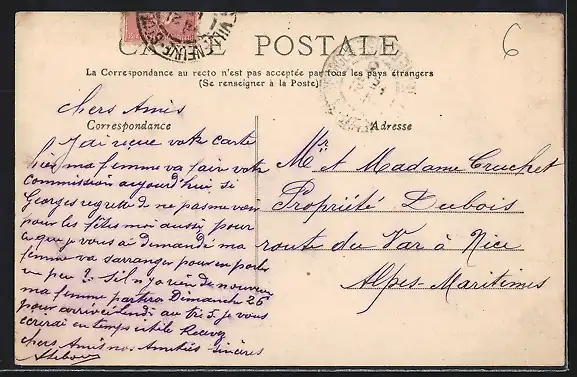 CARTE POSTALE
6
La Correspondance au recto n'est pas acceptée par tous les pays étrangers
(Se renseigner à la Poste)
Chers Amis
Correspondance
J'ai recue votre carte
hier ma femme va faire votre
Commission aujourd'hui si
Georges regrette de ne pas me voir
pour les fêtes moi aussi pour
ce que je vous ai demandé ma
femme va s'arranger pour en parler
un peu ? S'il n'y a rien de nouveau
ma femme partira Dimanche 26
pour arriver lundi au je vous
ecrerai en temps utile Recevez
chers Amis nos Amitiés sincères
Adresse
Mr et Madame Cruchet
Propriété Dubois
route du Var à Nice
Alpes-Maritimes